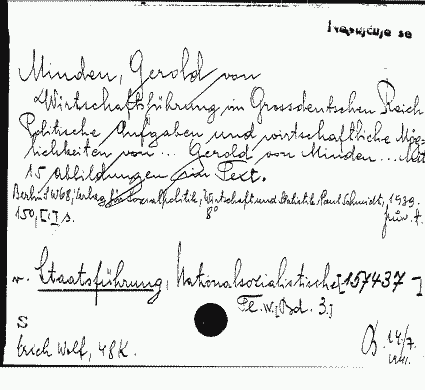 Minden, Gerold von
Wirtschaftsführung im Grossdeutschen Reich
Politische Aufgaben und wirtschaftliche Mög-
lichkeiten von ... Gerold von Minden ... Mit
15 Abbildungen im Text.
Berlin W68, Verlag für Sozialpolitik, Wirtschaft und Statistik Paul Schmidt, 1939.
150, [1] s. 8°
v. Staatsführung, Nationalsozialistische [157437]
[Bd. 3.]
S
Erich Wolf, 48 K. 14/7.